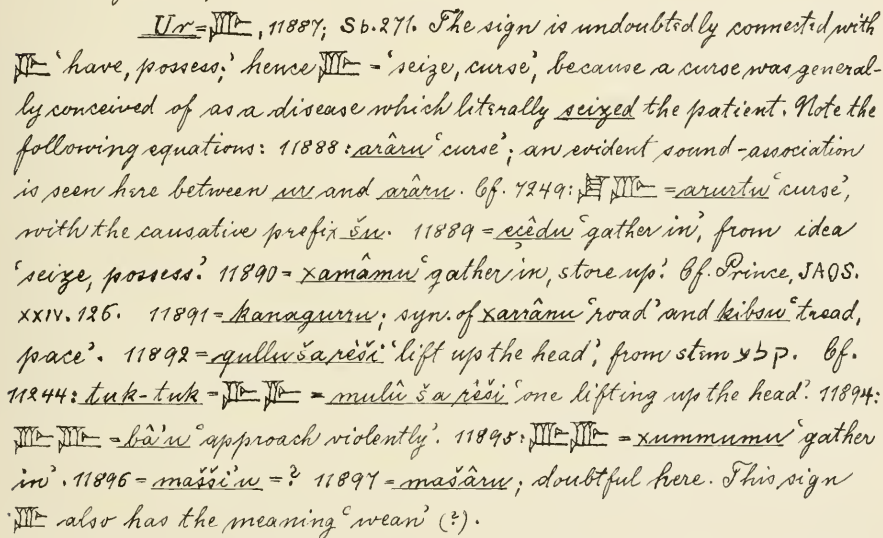 Ur = 𒌴, 11887; Sb. 271. The sign is undoubtedly connected with
𒌇 'have, possess;' hence 𒌴 = 'seize, curse', because a curse was general-
ly conceived of as a disease which literally seized the patient. Note the
following equations: 11888: arâru 'curse'; an evident sound-association
is seen here between ur and arâru. Cf. 7249: 𒋗𒌴 = arurtu 'curse',
with the causative prefix šu. 11889 = eçêdu 'gather in', from idea
'seize, possess'. 11890 = xamâmu 'gather in, store up'. Cf. Prince, JAOS.
XXIV. 126. 11891 = kanagurru; syn. of xarrânu 'road' and kibsu 'tread,
pace'. 11892 = qullu ša rêši 'lift up the head', from stem קלע. Cf.
11244: tuk-tuk = 𒌇𒌇 = mulû ša rêši 'one lifting up the head'. 11894:
𒌴𒌴 = bâ'u 'approach violently'. 11895: 𒌴𒌴 = xummumu 'gather
in'. 11896 = mašši'u = ? 11897 = mašâru; doubtful here. This sign
𒌴 also has the meaning 'wean' (?).